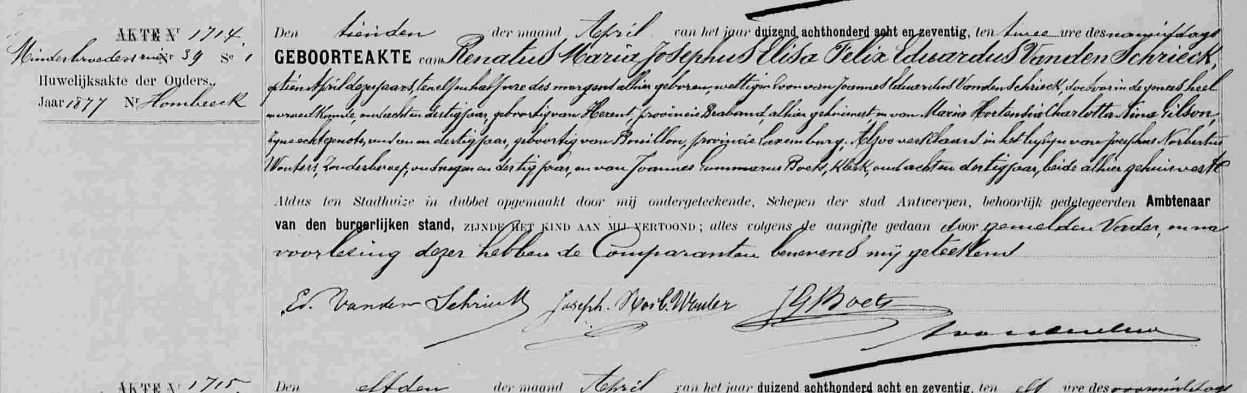 AKTE Nr 1714
Minderbroedersrui Nr 39 Sie 1
Huwelijksakte der Ouders..
Jaar 1877 Nr Hombeeck
Den tienden der maand April van het jaar duizend achthonderd acht en zeventig, ten twee ure des namiddags
GEBOORTEAKTE van Renatus Maria Josephus Elisa Felix Eduardus Vanden Schrieck,
den April dezes jaars, ten elf en half ure des morgens alhier geboren, wettigen zoon van Joannes Eduardus Vanden Schrieck, doctoor in de genees heel
en verloskunde, oud acht en dertig jaar, geboortig van Herent, provincie Braband, alhier gehuisvest en van Maria Hortensia Charlotta Nina Pilson,
zijne echtgenote, oud en dertig jaar, geboortig van Bouillon, provincie Luxemburg. Alzoo verklaard in het bijzijn van Josephus Norbertus
Wouters, Zonder beroep, oud negen en dertig jaar, en van Joannes Gummarus Boets, klerk, oud acht en dertig jaar, beide alhier gehuisvest
Aldus ten Stadhuize in dubbel opgemaakt door mij ondergeteekende, Schepen der stad Antwerpen, behoorlijk gedelegeerden Ambtenaar
van den burgerlijken stand, ZIJNDE HET KIND AAN MIJ VERTOOND; alles volgens de aangifte gedaan door gemelden Vader, en na
voorlesing dezer hebben de Comparanten benevens mij geteekend
Ed. Vanden Schrieck Joseph. Norb. Wouters JG Boets
AKTE Nr 1715
Den elfden der maand April van het jaar duizend achthonderd acht en zeventig, ten elf ure des voormiddags